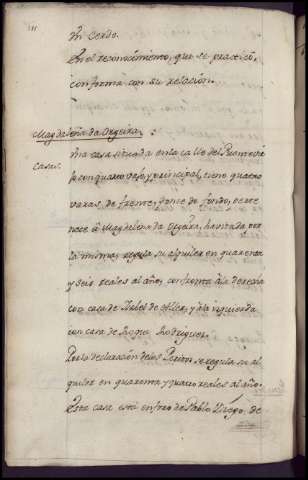 Un Cerdo.
En el reconocimiento, que se practicó,
conforma con su relacion.
Magdalena da Vegeira,
Casas.
Una casa situada en la calle del
con quarto vajo, y principal, tiene quatro
varas de frente, y doce de fondo, perte
nece â Magdalena da Vegeira, havitada por
la misma, regula su alquiler en quarenta
y seis reales al año, confronta âla derecha
con casa de Isabel de, y âla izquierda
con casa de Roque Rodriguez.
Por la declaracion delos Peritos se regula su al
quiler en quarenta y quatro reales al año.
Esta casa está en foro de Pablo Diego, de